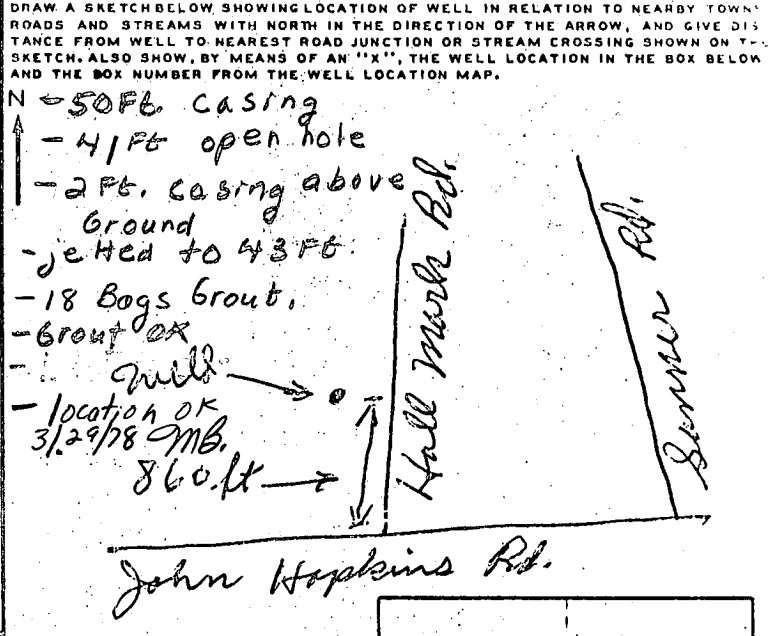 DRAW A SKETCH BELOW SHOWING LOCATION OF WELL IN RELATION TO NEARBY TOWNS
ROADS AND STREAMS WITH NORTH IN THE DIRECTION OF THE ARROW, AND GIVE DIS
TANCE FROM WELL TO NEAREST ROAD JUNCTION OR STREAM CROSSING SHOWN ON THE
SKETCH. ALSO SHOW, BY MEANS OF AN "X", THE WELL LOCATION IN THE BOX BELOW
AND THE BOX NUMBER FROM THE WELL LOCATION MAP.
N
- 50 Ft. casing
- 41 Ft open hole
- 2 Ft. casing above
Ground
- jetted to 43 Ft.
- 18 Bags Grout.
- Grout OK
well
- location OK
3/29/78 MB.
860 ft
Hall Mark Rd.
Sanner Rd.
John Hopkins Rd.